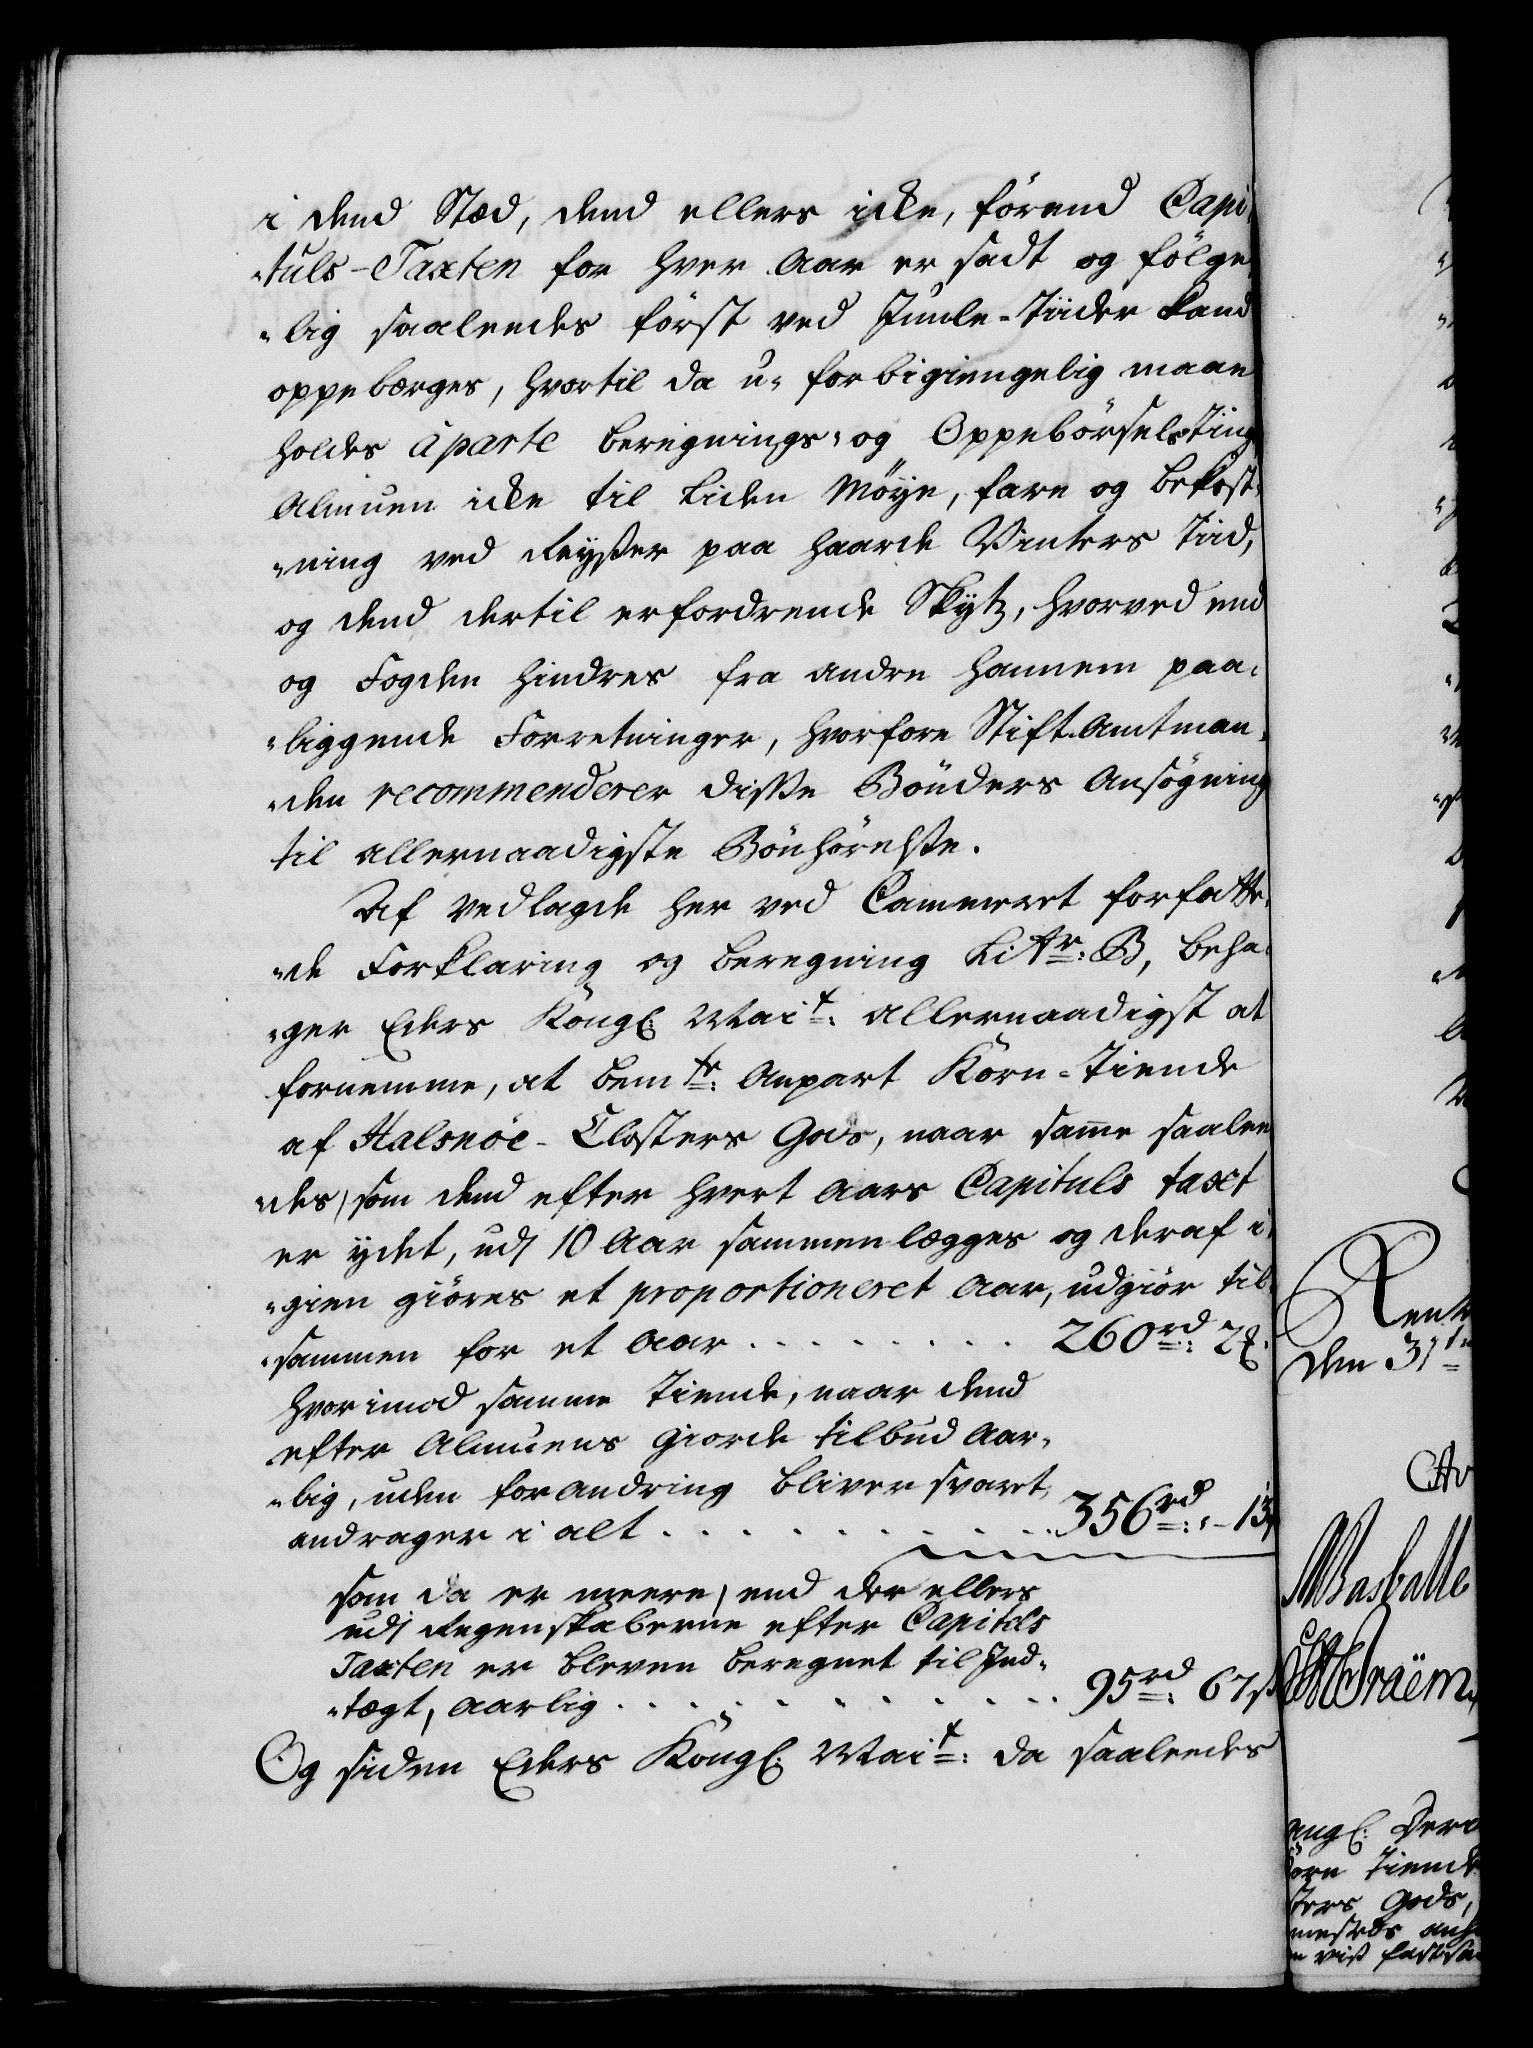 i dend Stæd, dend ellers icke, förend Capi-
-tuls-Taxten for hver Aar er sadt og fölge-
-lig saaleedes först ved Juule-Tiider kand
oppebærges, hvortil da u-forbigiengelig maae
holdes àparte beregnings- og Oppebörsels-Ting
Almuen icke til liden Möÿe, fare og bekost-
-ning ved Reyßer paa haarde Vinters Tiid,
og dend dertil erfordrende Skytz, hvorved end
og Fogden hindres fra andre hannem paa-
-liggende Forretninger, hvorfore Stift-Amtman-
-den recommenderer disse Bönders Ansögning
til allernaadigste Bönhörelße.
Af vedlagde her ved Cammeret forfatte-
-de Forklaring og beregning Litr: B, beha-
-ger Eders Kongl: Mait: allernaadigst at
fornemme, at bemte: Anpart Korn-Tiende
af Halsnöe-Closters Gods, naar samme saalee-
-des, som dend efter hvert Aars Capituls taxt
er ydet, udj 10 Aar sammenlægges og deraf i-
-gien giöres et proportioneret Aar, udgiör til-
-sammen for et Aar . . . . . . . . 260rd: 2ß.
hvorimod samme Tiende, naar dend
efter Almuens giorde tilbud Aar-
-lig, uden forandring bliver svaret,
andrager i alt . . . . . . . . . . 356rd: „- 13
som da er meere, end der ellers
udj Regenskaberne efter Capitels
Taxten er bleven beregnet til Ind-
-tægt, aarlig . . . . . . . . . . 95rd: 67ß
Og siden Eders Kongl: Mait: da saaleedes
den 31te
ongl:
orn Tiende
sters Gods,